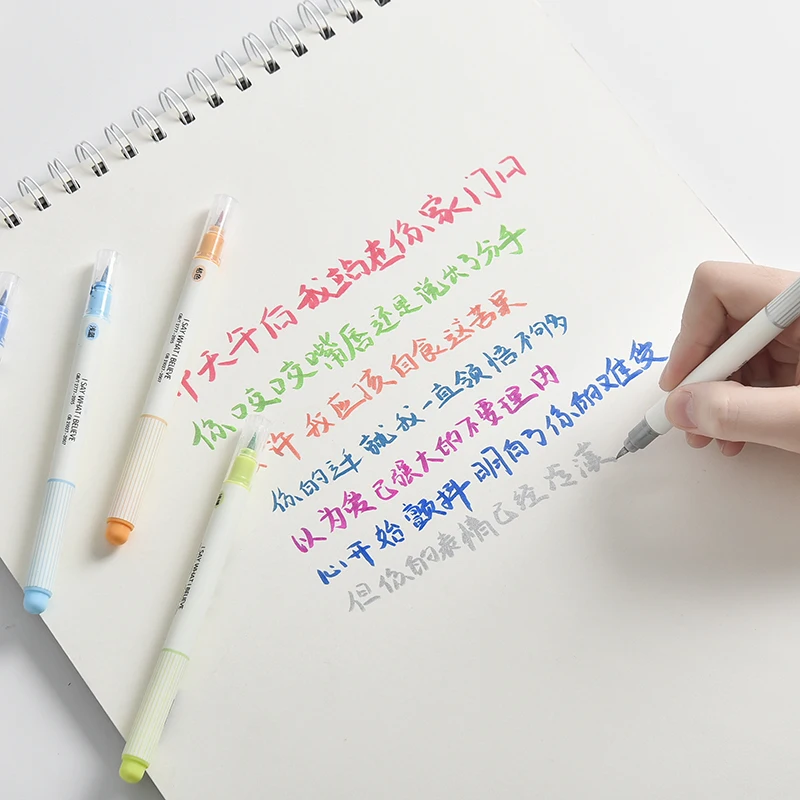 天午后我站在你家门口
你咬咬嘴唇还是说出了分手
许我应该自食这苦果
你的迁就我一直领悟不够多
以为爱已强大的不要理由
心开始颤抖 明白了你的难受
但你的表情已经冷漠
I SAY WHAT I BELIEVE
I SAY WHAT I BELIEVE
I SAY WHAT I BELIEVE